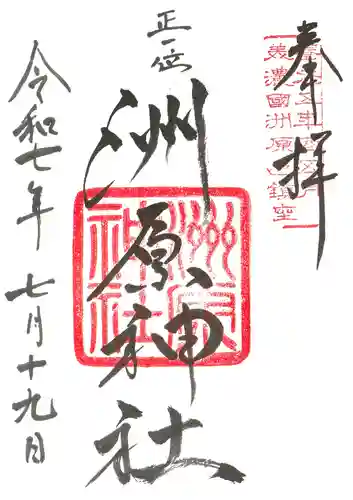 奉拝
美濃國洲原山鎮座
正一位
洲原神社
洲原神社
令和七年 七月十九日